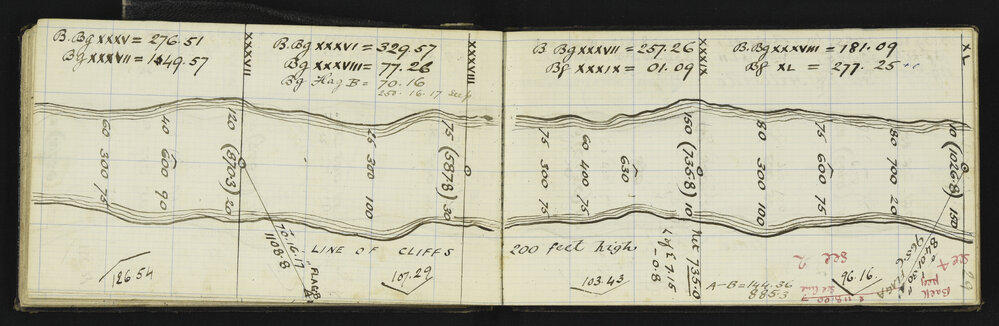 B. Bg XXXV = 276.51
Bg XXXVII = 149.57
XXXVII
B. Bg XXXVI = 329.57
Bg XXXVIII = 77.26
Bg Flag B = 70.16
250.16.17 See p
XXXVIII
60 300 75
40 600 90
120 (870.3) 20
25 300 100
75 (587.8) 30
70.16.17
1108.8
FLAG B
LINE OF CLIFFS
126.54
107.29
B Bg XXXVII = 257.26
Bg XXXIX = 01.09
XXXIX
B. Bg XXXVIII = 181.09
Bg XL = 277.25
XL
75 300 75
60 400 75
630
150 (735.8) 10
80 300 100
75 600 75
80 700 20
10 (1026.8) 150
200 feet high
103.43
Net 735.0
-0.8
A-B = 144.36
885.3
96.16
See 2
See 4
Back